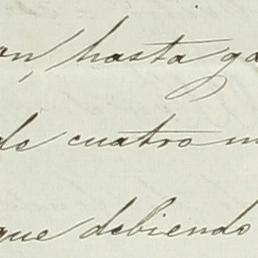 on, hasta ga
de cuatro m
que debiendo